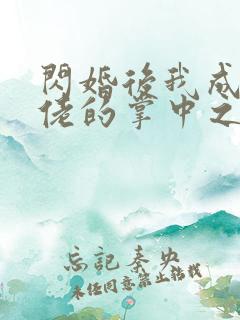 閃婚後我成
佬的掌中之
忘記秦央
未经同意禁止转载